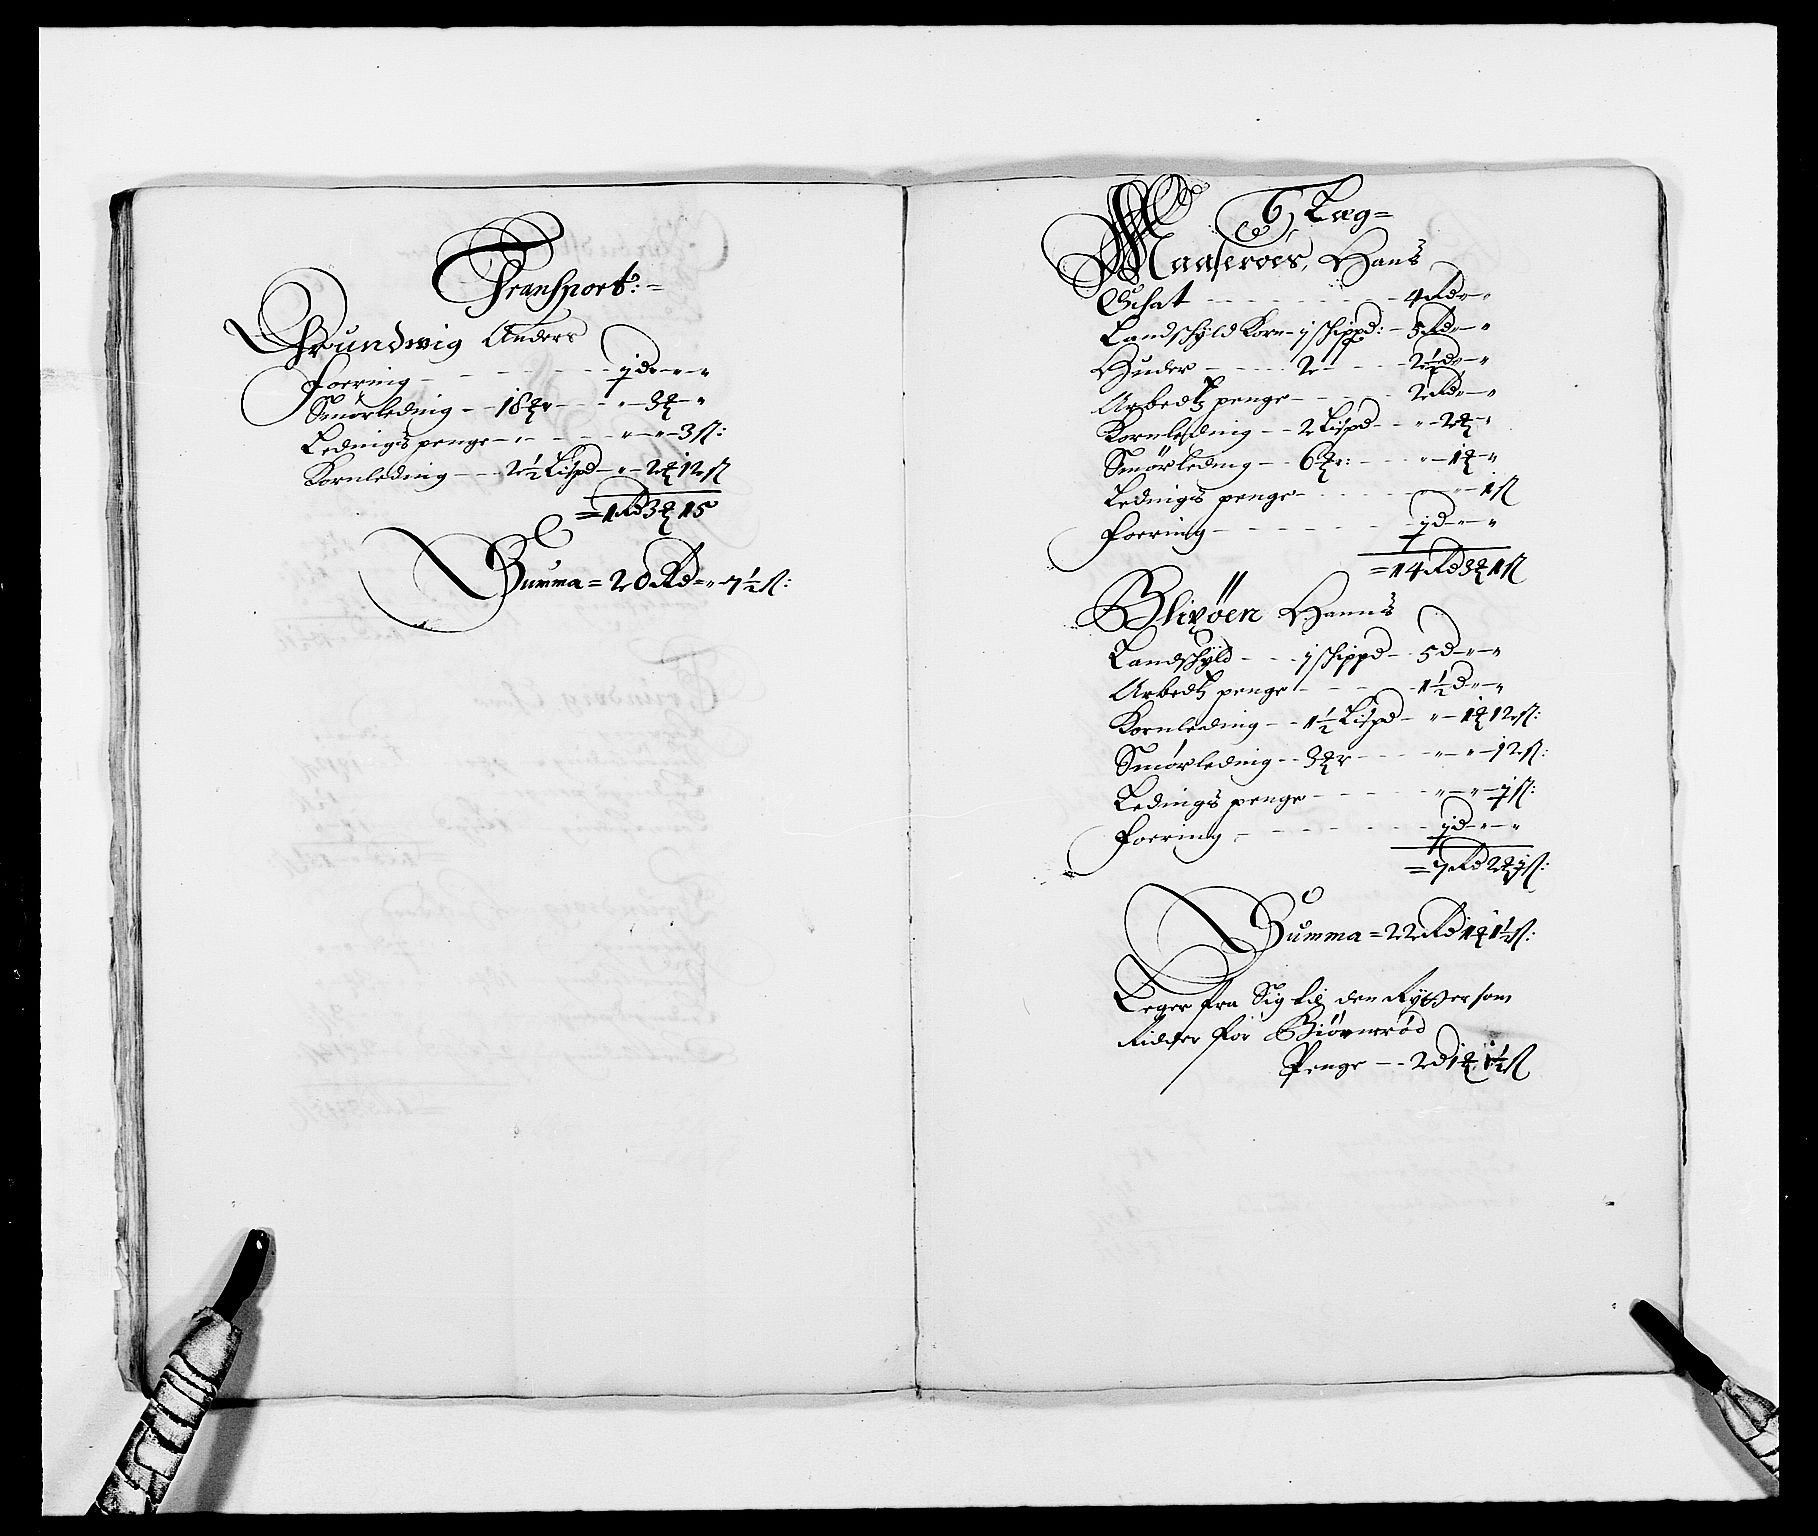 Transport:=
Grundwig Anders
Foering - - - - - - - 1 d - " - "
Smørleding - - 18 ℔r - - - " - 3 ℔ - "
Ledings penge - - - - - " - " - 3 ß:
Kornleding - - - 2½ Lispd - " - 2 ℔ 12 ß
= 1 Rd 3 ℔ 15
Summa = 20 Rd = " 7½ ß:
6 Læg =
Maaserøes, Hans
Schat - - - - - - - - 4 Rd - "
Landschyld Korn - 1 schippd: - 5 Rd - "
Huder - - - - - 2 - - - - 2½ d - "
Arbedtz penge - - - - - 2 Rd - "
Kornleding - - 2 Lispd - - " - 2 ℔ - "
Smørleding - - 6 ℔r: - - - " - 1 ℔ - "
Ledings penge - - - - - " - " - 1 ß
Foering - - - - - - - 1 d - " - "
= 14 Rd 3 ℔ 1 ß
Blixøen Hanns
Landschyld - - - 1 schippd - 5 d - " - "
Arbedtz penge - - - - - 1½ d - " - "
Kornleding - - 1½ Lispd - " - 1 ℔ 12 ß:
Smørleding - - 3 ℔r - - - - " - " - 12 ß:
Ledings penge - - - - - " - " - 1 ß:
Foering - - - - - - - 1 d - " - "
= 7 Rd 2 ℔ 1 ß:
Summa = 22 Rd 1 ℔ 1½ ß:
Leger fra Sig til den Rytter som
Ridder for Biørnerød
Penge - - - 2 d 1 ℔ 1½ ß